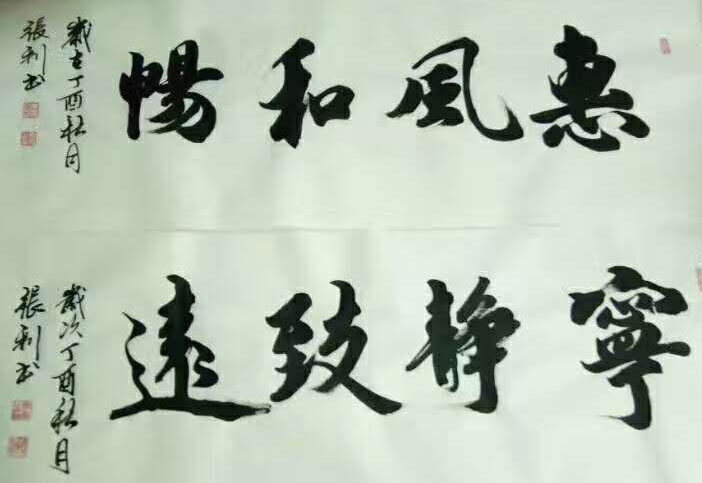 惠風和暢
歲在丁酉秋月
張利书
寧静致遠
歲次丁酉秋月
張利书